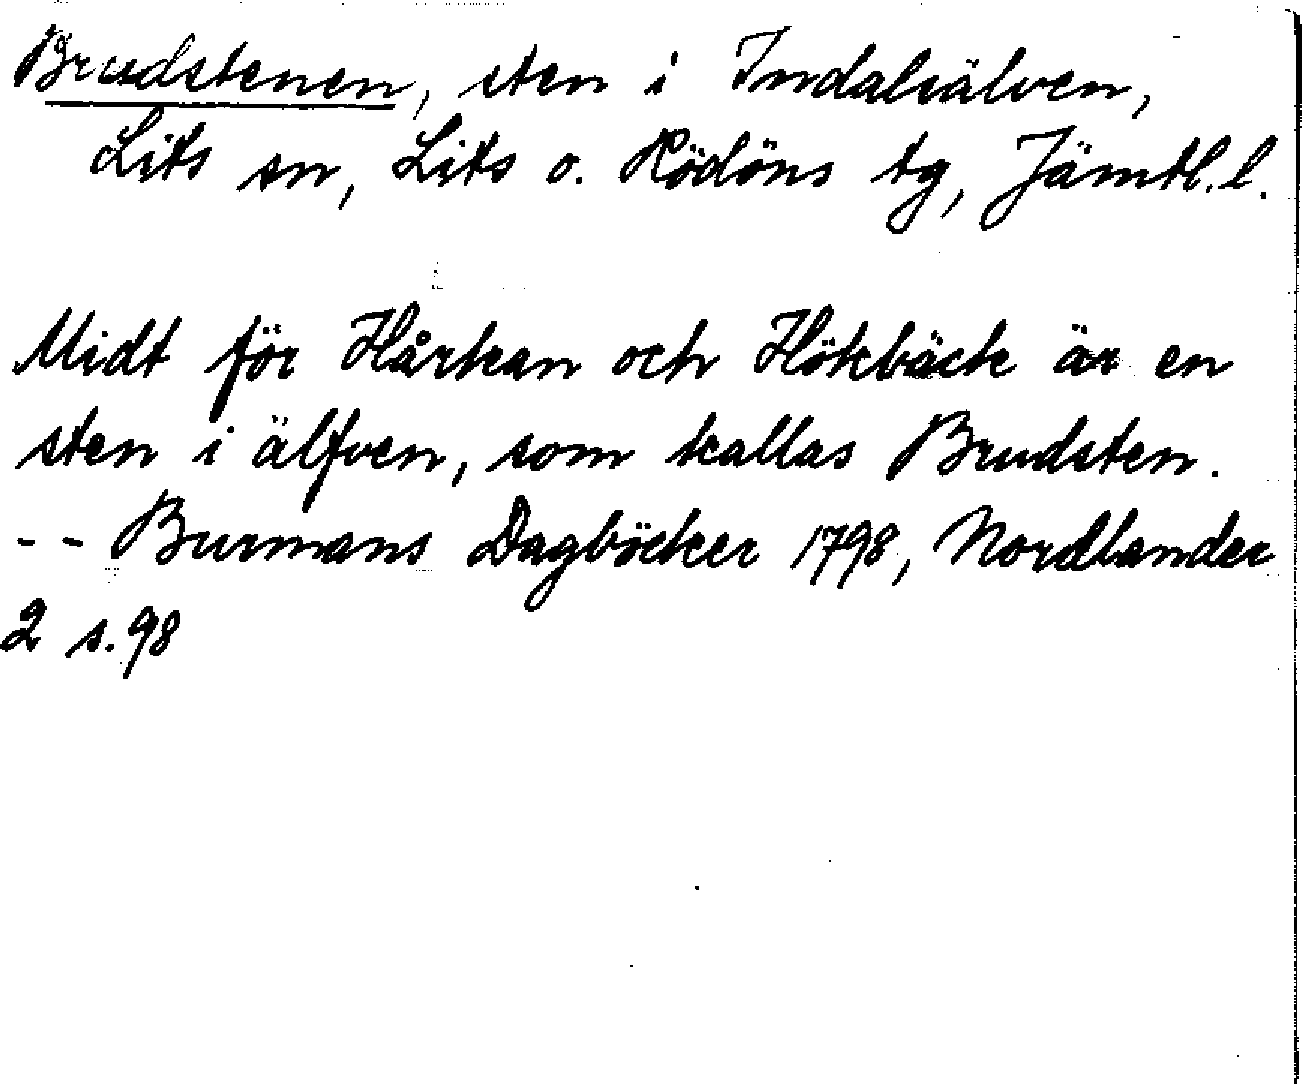 Brudstenen, sten i Indalsälven,
Lits sn, Lits o. Rödöns tg, Jämtl. l.
Midt för Hårkan och Hökbäck är en
sten i älfven, som kallas Brudsten.
-- Burmans Dagböcker 1798, Nordlander
2 s. 98